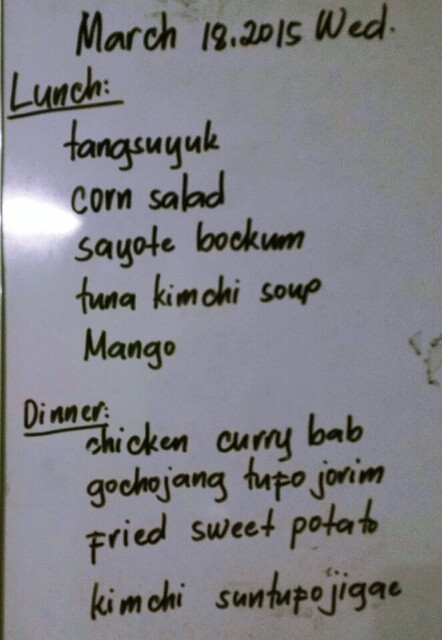 March 18.2015 Wed.
Lunch:
tangsuyuk
corn salad
sayote bockum
tuna kimchi soup
Mango
Dinner:
chicken curry bab
gochojang tufo jorim
Fried sweet potato
kimchi suntufojigae